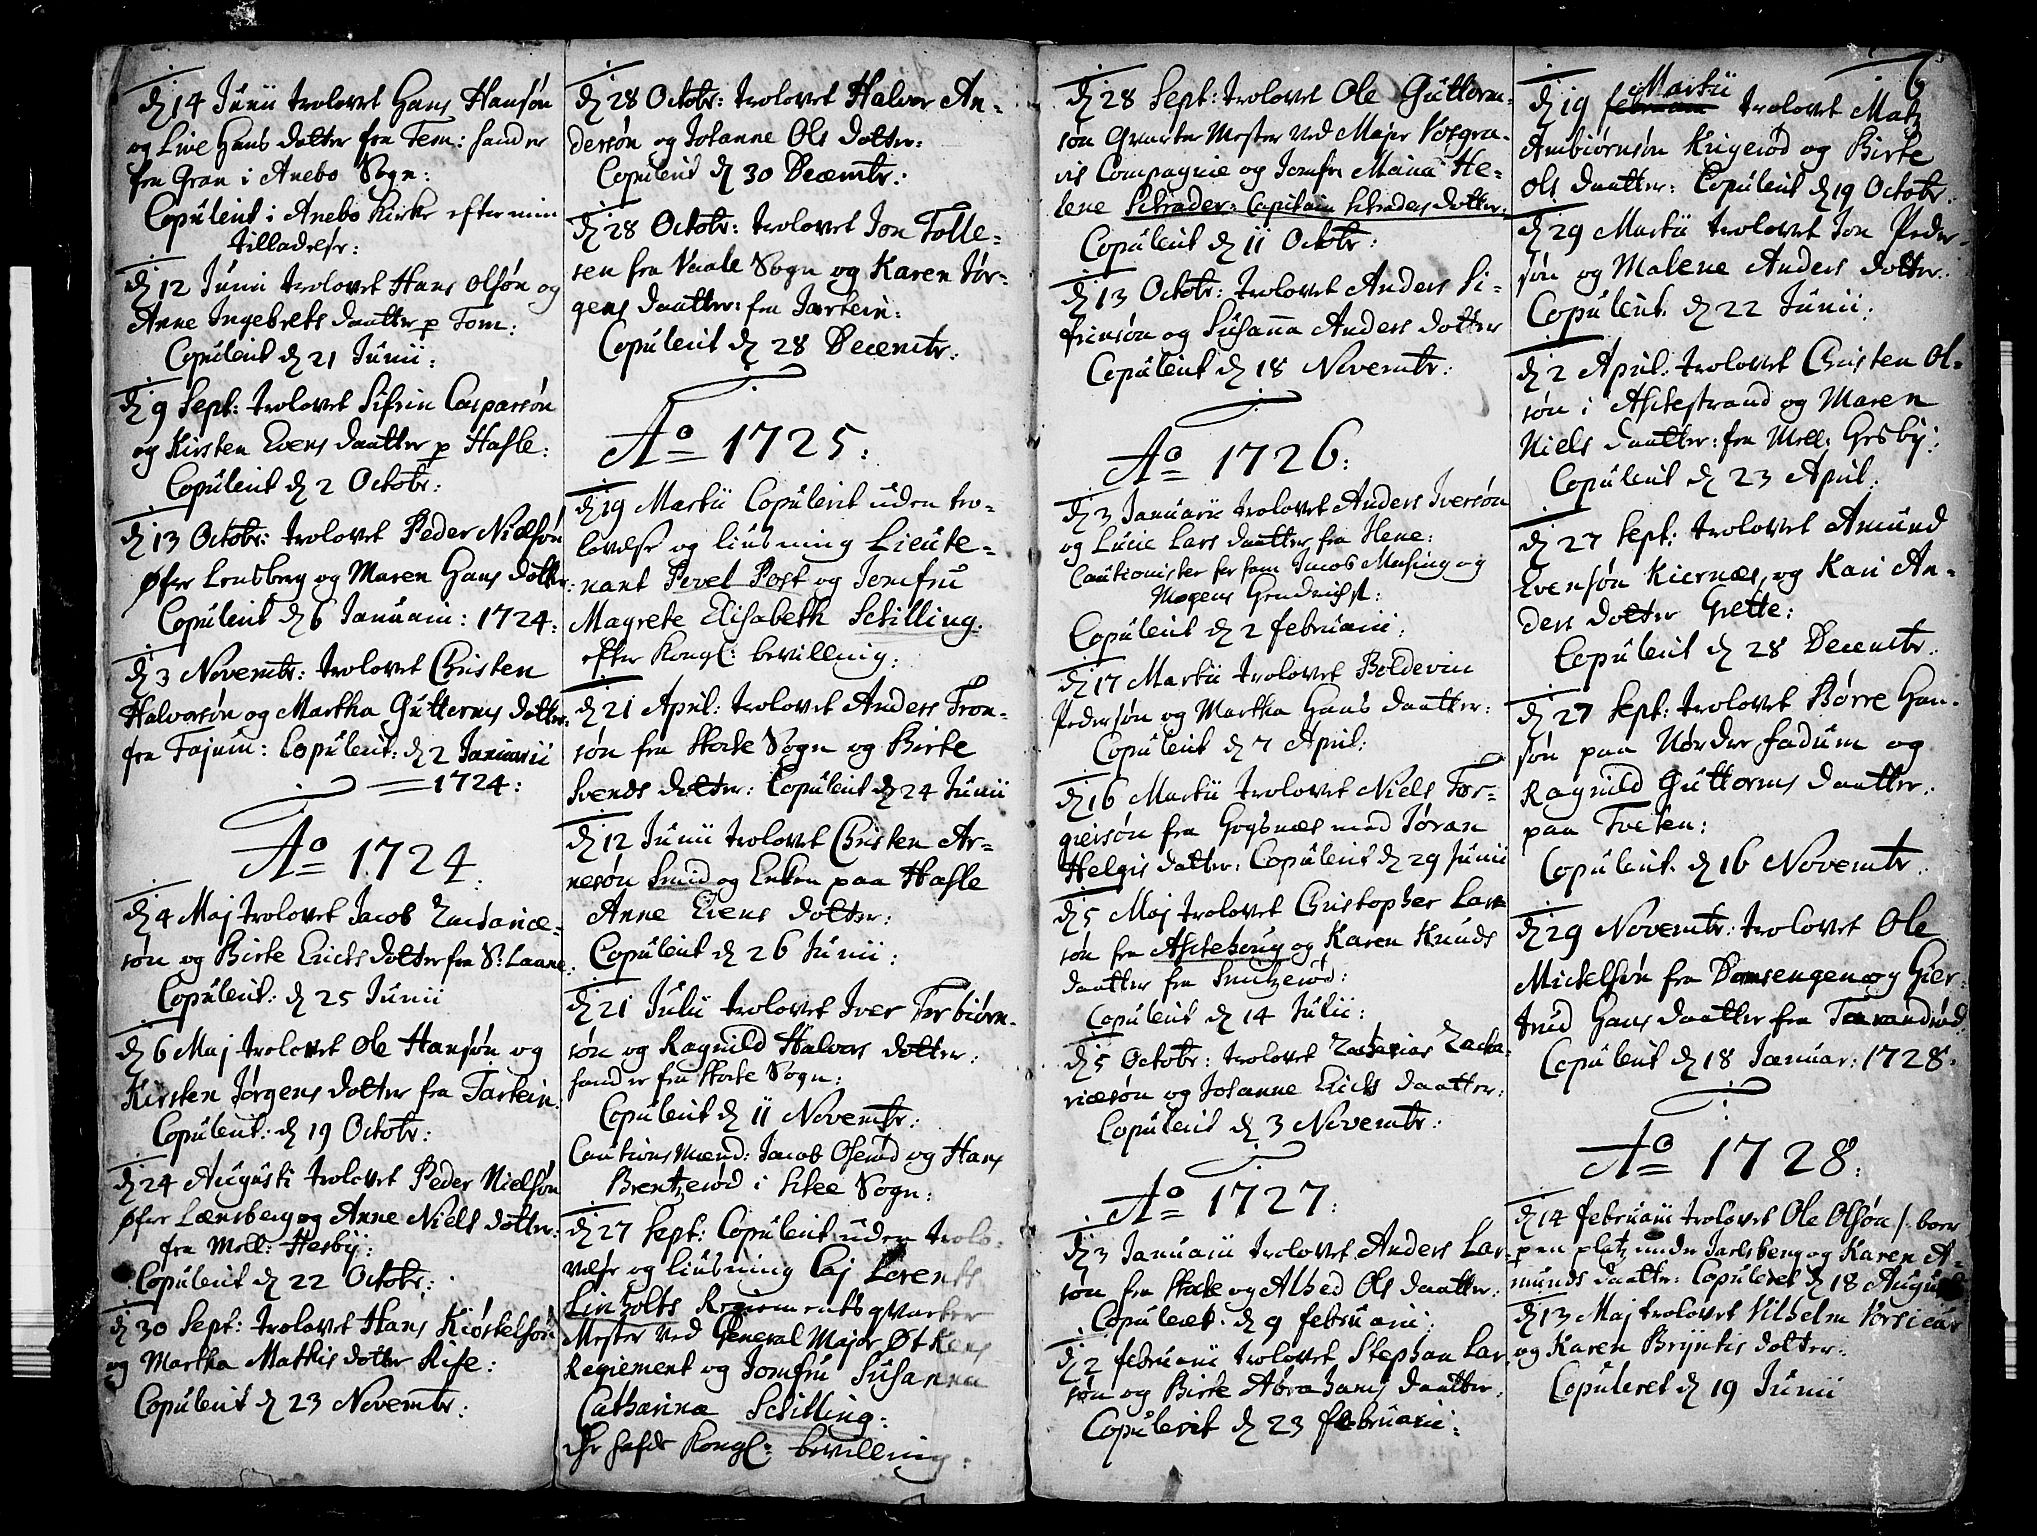 d 14 Junii trolovet Hans Hansøn
og Live Hans dotter fra Tem: hand er
fra Gran i Anebo Sogn:
Copulerit i Anebo Kirke efter min
tilladelse:
d 12 Junii trolovet Hans Olsøn og
Anne Ingebrets daatter p Tom:
Copulerit d 21 Junii:
d 9 Sept: trolovet Sifrin Casparsøn
og Kirsten Evens daatter p Hasle:
Copulerit d 2 Octobr:
d 13 Octobr: trolovet Peder Nielsøn
Øfre Lensberg og Maren Hans dotter:
Copulerit d 6 Januarii: 1724:
d 3 Novembr: trolovet Christen
Halvorsøn og Martha Gutterms dotter
fra Fajum: Copulerit: d 2 Januarii
1724:
Ao 1724
d 4 Maj trolovet Jacob Zachariæ-
søn og Birte Erichs dotter fra S: Laane:
Copulerit: d 25 Junii
d 6 Maj trolovet Ole Hansøn og
Kirsten Jørgens dotter fra Jartein:
Copulerit: d 19 Octobr:
d 24 Augusti trolovet Peder Nielsøn
Øfre Lænsberg og Anne Niels dotter:
fra Mell: Hesby:
Copulerit d 22 Octobr:
d 30 Sept: trolovet Hans Kiøstelsøn
og Martha Mathis dotter Rise:
Copulerit d 23 Novembr:
d 28 Octobr: trolovet Halvor An-
dersøn og Johanne Ols dotter:
Copulerit d 30 Decembr:
d 28 Octobr: trolovet Jon Tolle-
sen fra Vaale Sogn og Karen Jør-
gens daatter: fra Jartein:
Copulerit d 28 Decembr:
Ao 1725:
d 19 Martii Copulerit uden tro-
lovelse og liusning Lieute-
nant Povel Post og Jomfru
Magrete Elisabeth Schilling:
efter Kongl: bevilling:
d 21 April: trolovet Anders Tron-
søn fra Stoche Sogn og Birte
Svends dotter: Copulerit d 24 Junii
d 12 Junii trolovet Christen Ar-
nesøn Smid og Enken paa Hasle
Anne Evens dotter:
Copulerit d 26 Junii:
d 21 Julii trolovet Iver Torbiørn-
søn og Ragnild Halvors dotter:
hand er fra Stoche Sogn:
Copulerit d 11 Novembr:
Cautions mænd: Jacob Oserød og Hans
Brentzerød i Schee Sogn:
d 27 Sept: Copulerit uden trolo-
velse og liusning Caj Lorents
Linholts Regiements qvarter
Mester ved General Major Øtkens
Regiement og Jomfru Susanna
Catharina Schilling:
der hafde Kongl: bevilling:
d 28 Sept: trolovet Ole Gutterm-
søn Qvarter Mester ved Major Vosgra-
vis Compagnie og Jomfr Maria He-
lene Schrader: Capitain Schraders dotter:
Copulerit d 11 Octobr:
d 13 Octobr: trolovet Anders Si-
frensøn og Susanna Anders dotter
Copulerit d 18 Novembr:
Ao 1726:
d 3 Januarii trolovet Anders Iversøn
og Lucie Lars daatter fra Hene:
Cautionister for ham Jacob Mussing og
Mogens Hendrichs:
Copulerit d 2 februarii:
d 17 Martii trolovet Boldevin
Pedersøn og Martha Hans daatter:
Copulerit d 7 April:
d 16 Martii trolovet Niels Tor-
giersøn fra Gogsnæs med Jøran
Helgis dotter: Copulerit d 29 Junii
d 5 Maj trolovet Christopher Lar-
søn fra Aschehoug og Karen Knuds
daatter fra Smitzerød:
Copulerit d 14 Julii:
d 5 Octobr: trolovet Zacharias Zacha-
riæsøn og Johanne Erichs daatter:
Copulerit d 3 Novembr:
Ao 1727:
d 3 Januarii trolovet Anders Lar-
søn fra Stoche og Alhed Ols daatter:
Copuleret d 9 februarii:
d 2 februarii trolovet Stephan Lar-
søn og Birte Abrahams daatter:
Copulerit d 23 februarii:
6
d 19 februarii Martii trolovet Matz
Ambiørnsøn Krigerød og Birte
Ols daatter: Copulerit d 19 Octobr:
d 29 Martii trolovet Jon Peder-
søn og Malene Anders dotter:
Copulerit d 22 Junii:
d 2 April: trolovet Christen Ol-
søn i Aschestrand og Maren
Niels daatter: fra Mell: Gresby:
Copulerit d 23 April:
d 27 Sept: trolovet Amund
Evensøn Kiernæs, og Kari An-
ders dotter Grette:
Copulerit d 28 Decembr:
d 27 Sept: trolovet Børre Han-
søn paa Nørder fadum og
Ragnild Guttorms daatter:
paa Tveten:
Copulerit d 16 Novembr:
d 29 Novembr: trolovet Ole
Michelsøn fra Domsengen og Gier-
trud Hans daatter fra Taarandrød:
Copulerit d 18 Januar: 1728:
Ao 1728:
d 14 februarii trolovet Ole Olsøn / boer
paa platz under Jarlsberg og Karen A-
munds daatter: Copuleret d 18 August
d 13 Maj trolovet Vilhelm
og Karen Bryntis dotter:
Copuleret d 19 Junii